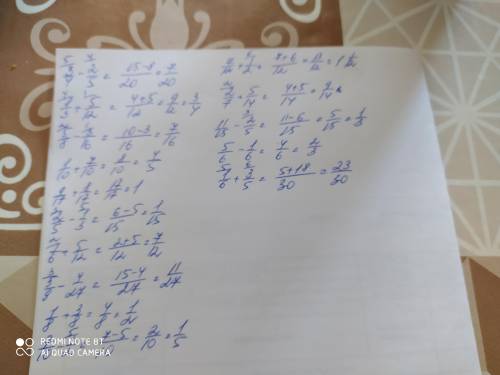 3/4 - 2/5 = (15-8)/20 = 7/20
1/3 + 5/12 = (4+5)/12 = 9/12 = 3/4
5/8 - 3/16 = (10-3)/16 = 7/16
1/10 + 7/10 = 8/10 = 4/5
9/17 + 8/17 = 17/17 = 1
2/5 - 1/3 = (6-5)/15 = 1/15
1/6 + 5/12 = (2+5)/12 = 7/12
5/9 - 4/27 = (15-4)/27 = 11/27
1/8 + 3/8 = 4/8 = 1/2
= 2/10 = 1/5
7/12 + 1/2 = (7+6)/12 = 13/12 = 1 1/12
2/7 + 5/14 = (4+5)/14 = 9/14
11/15 - 2/5 = (11-6)/15 = 5/15 = 1/3
5/6 - 1/6 = 4/6 = 2/3
1/6 + 3/5 = (5+18)/30 = 23/30
REDMI NOTE 8T
AI QUAD CAMERA